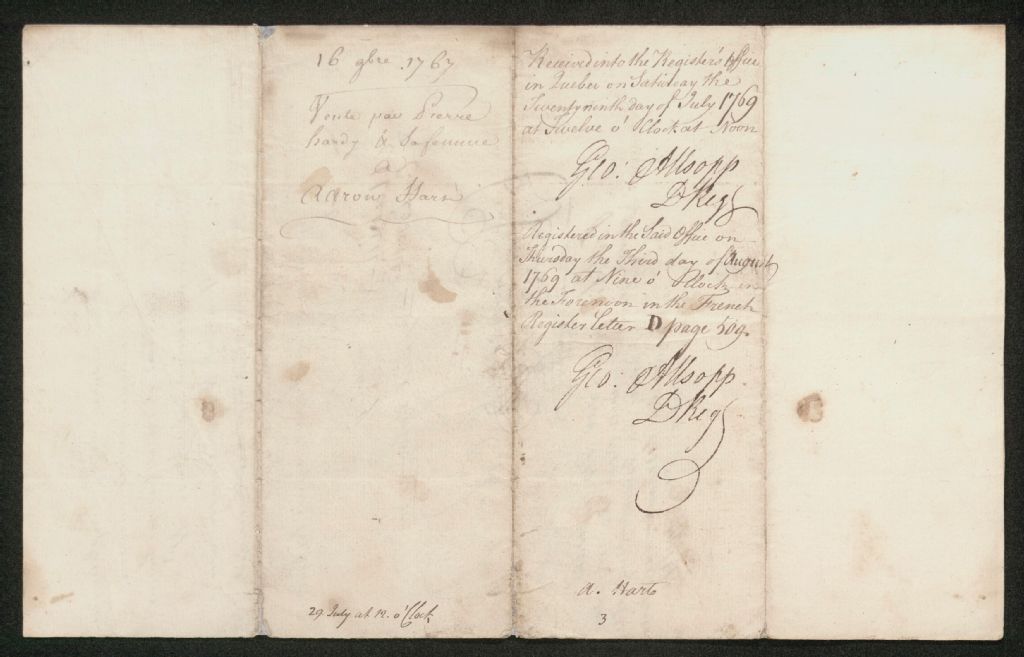 16 9bre. 1767
Vente par Pierre
hardy & Safemme
a
Aaron Hart
29 July at 12. o'Clock
Received into the Register's Office
in Quebec on Saturday the
Twentyninth day of July 1769
at Twelve o' Clock at Noon
Geo: Allsopp
D Reg
Registered in the Said Office on
Thursday the Third day of August
1769 at Nine o' Clock in
the Forenoon in the French
Register Letter D page 509.
Geo: Allsopp.
D Reg
a. Harts
3